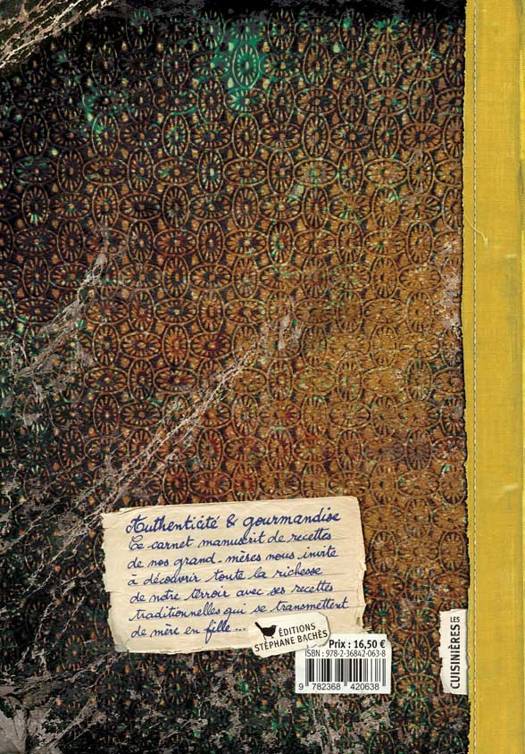 Authenticité & gourmandise
Ce carnet manuscrit de recettes
de nos grand-mères nous invite
à découvrir toute la richesse
de notre terroir avec ses recettes
traditionnelles qui se transmettent
de mère en fille...
ÉDITIONS
STÉPHANE BACHÈS
Prix : 16,50 €
ISBN : 978-2-36842-063-8
9 782368 420638
CUISINIÈRES